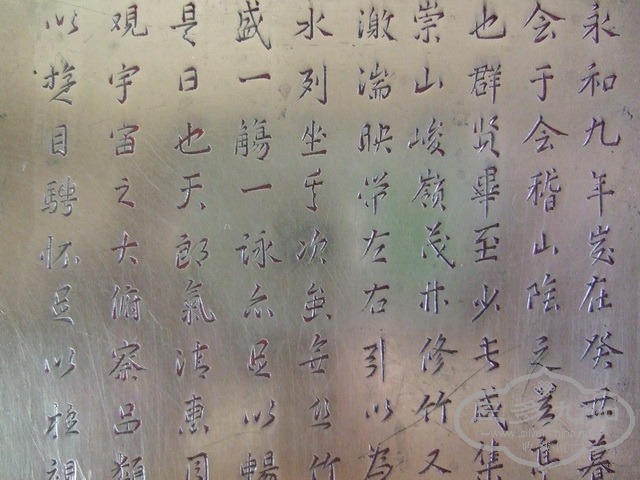 永和九年岁在癸丑暮
会于会稽山陰之兰亭
也群贤畢至少长咸集
崇山峻嶺茂林修竹又
激湍映带左右引以為
水列坐其次虽無丝竹
盛一觴一詠亦足以暢
是日也天郎氣清惠風
觀宇宙之大俯察品類
以遊目騁怀足以極視